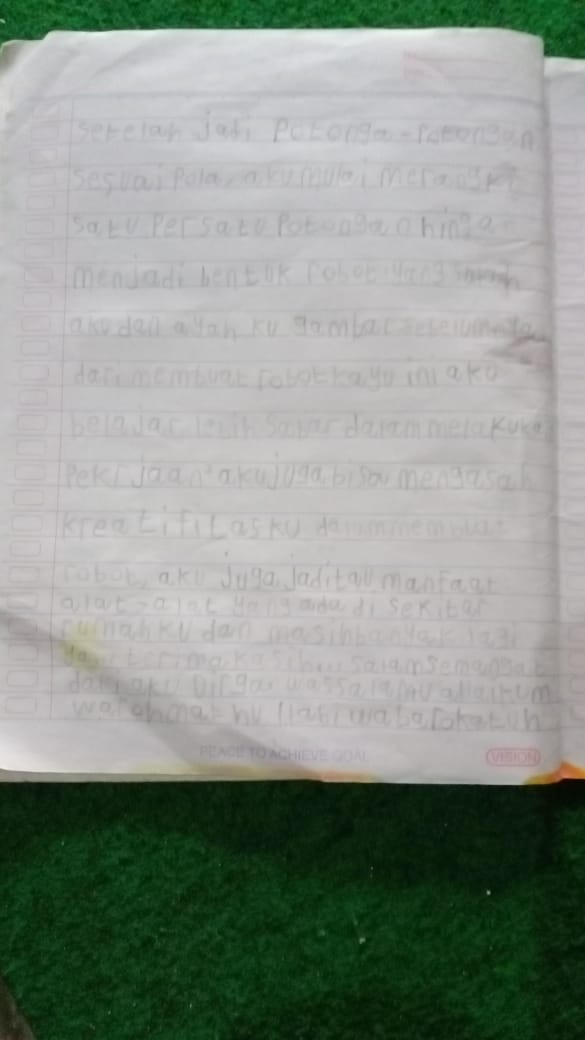 setelah jadi Potonga-Potongan
sesuai Pola, aku mulai merangk
satu Persatu Potongan hinga
menjadi bentuk robot yang
aku dan ayah ku gambar sebelumnya
dari membuat robot kayu ini aku
belajar lebih sabar dalam melakuka
Pekrjaan aku juga bisa mengasah
kreatifitasku dalam membuat
robot, aku juga jaditau manfaat
alat-alat yang ada di sekitar
rumahku dan masih banyak lagi
terima kasih... salam semangat
dari aku Dirga, wassalamu
warohmat hu
PEACE TO ACHIEVE GOAL
VISION